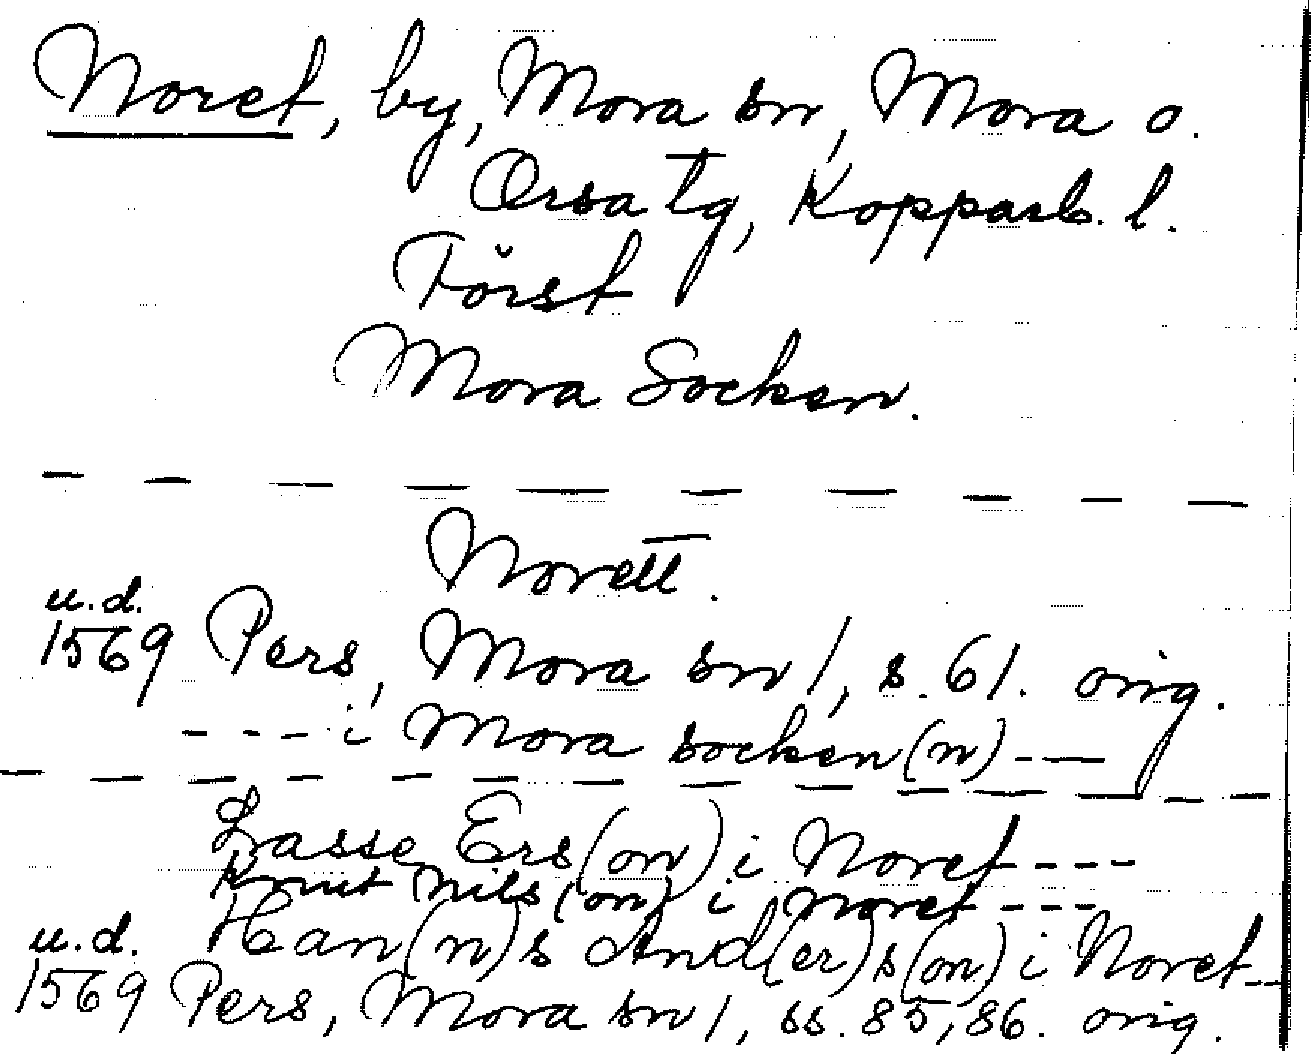 Noret, by, Mora sn, Mora o.
Orsa tg, Kopparb. l.
Först
Mora Socken.
Norett.
u.d.
1569 Pers, Mora sn 1, s. 61. orig.
- - - i Mora socken(n) - - -
Lasse Ers(on) i Noret - - -
Knut Nils(on) i Noret - - -
u.d. Han(n)s And(er)s(on) i Noret - -
1569 Pers, Mora sn 1, ss. 85, 86. orig.